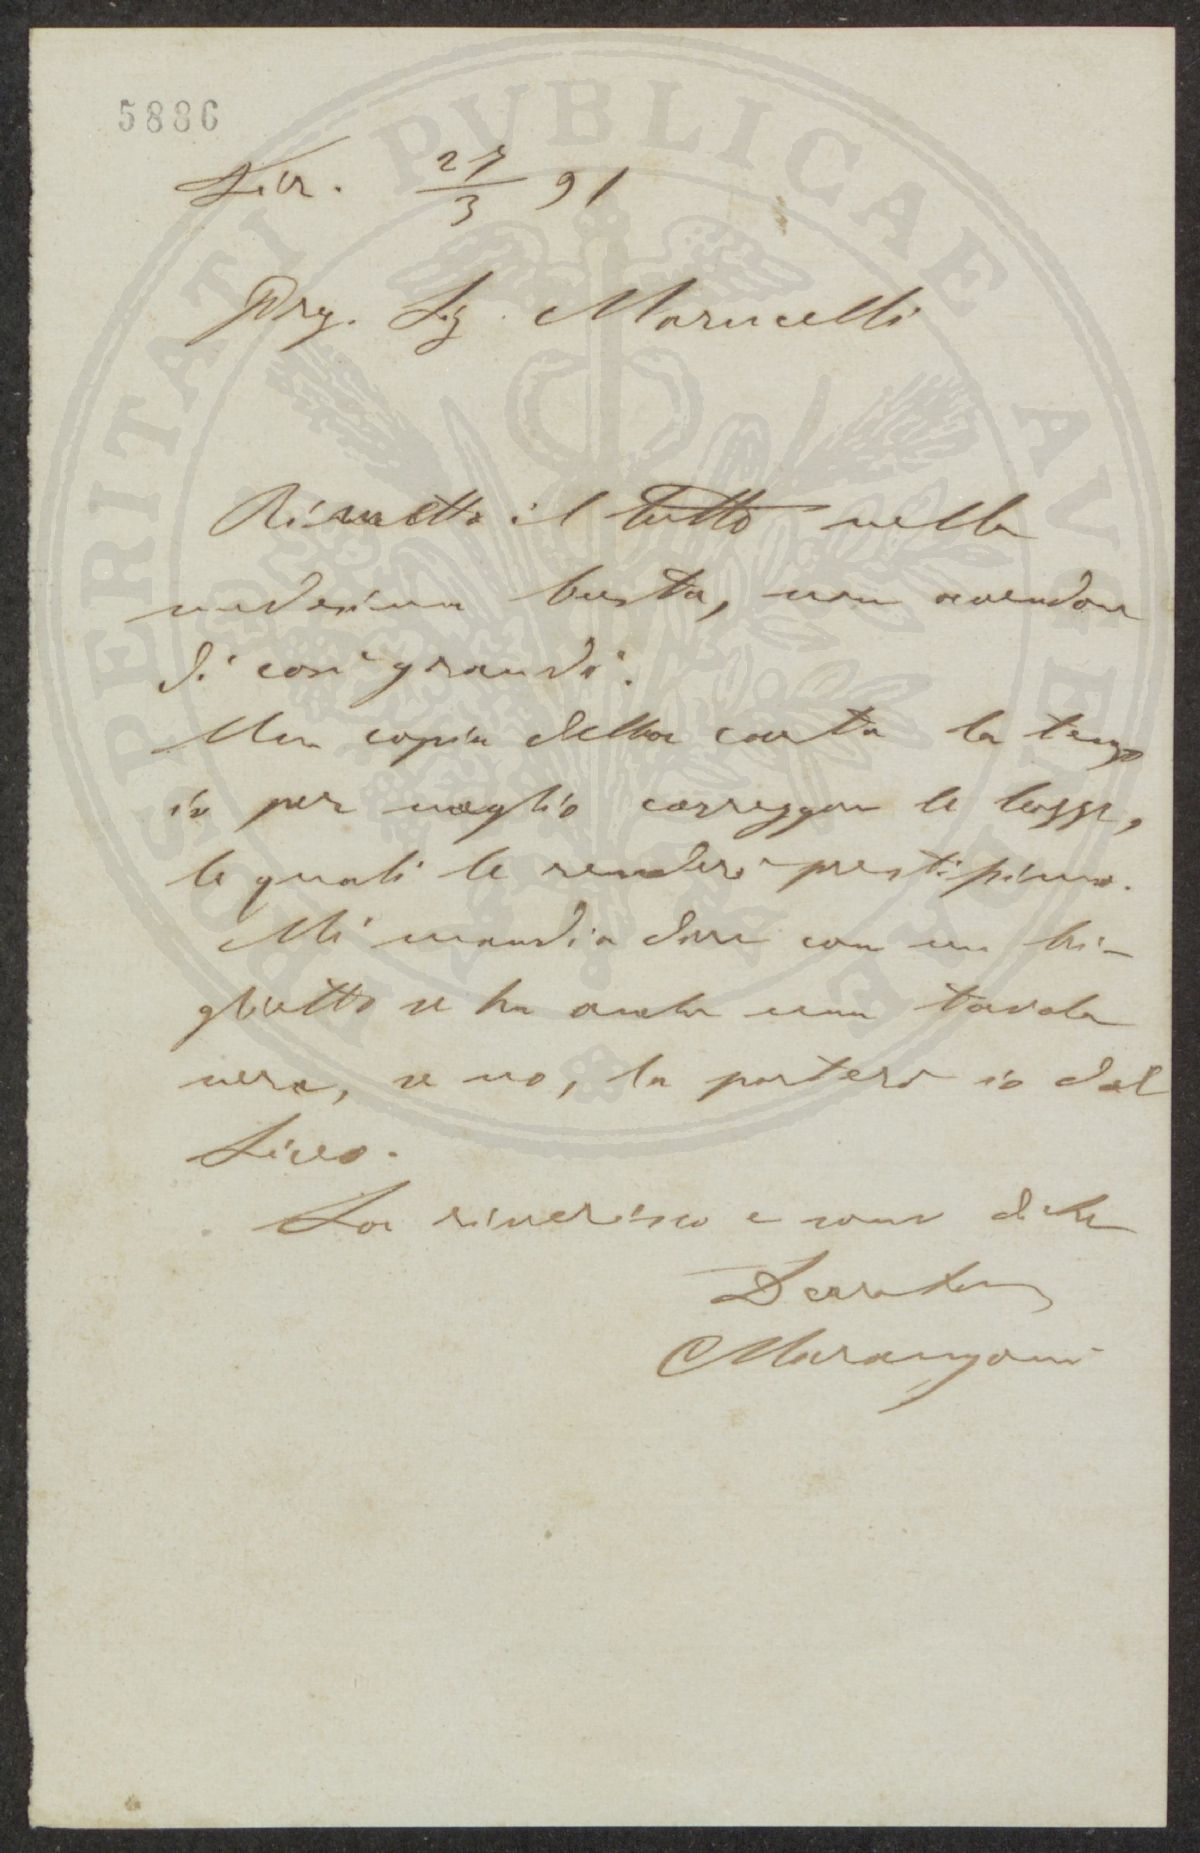 5886
Fir. 27/3 91
Preg. Sig. Marucelli
Rimetto il tutto nella
medesima busta, non avendone
di così grandi.
Una copia della carta la tengo
io per meglio correggere le leggi,
le quali le renderò prestissimo.
Mi mandia dire con un bi-
glietto se ha anche una tavola
nera, se no, la porterò io dal
Liceo.
La riverisco e sono di Lei
Marangoni
PROSPERITATI PVBLICAE AVGENDAE